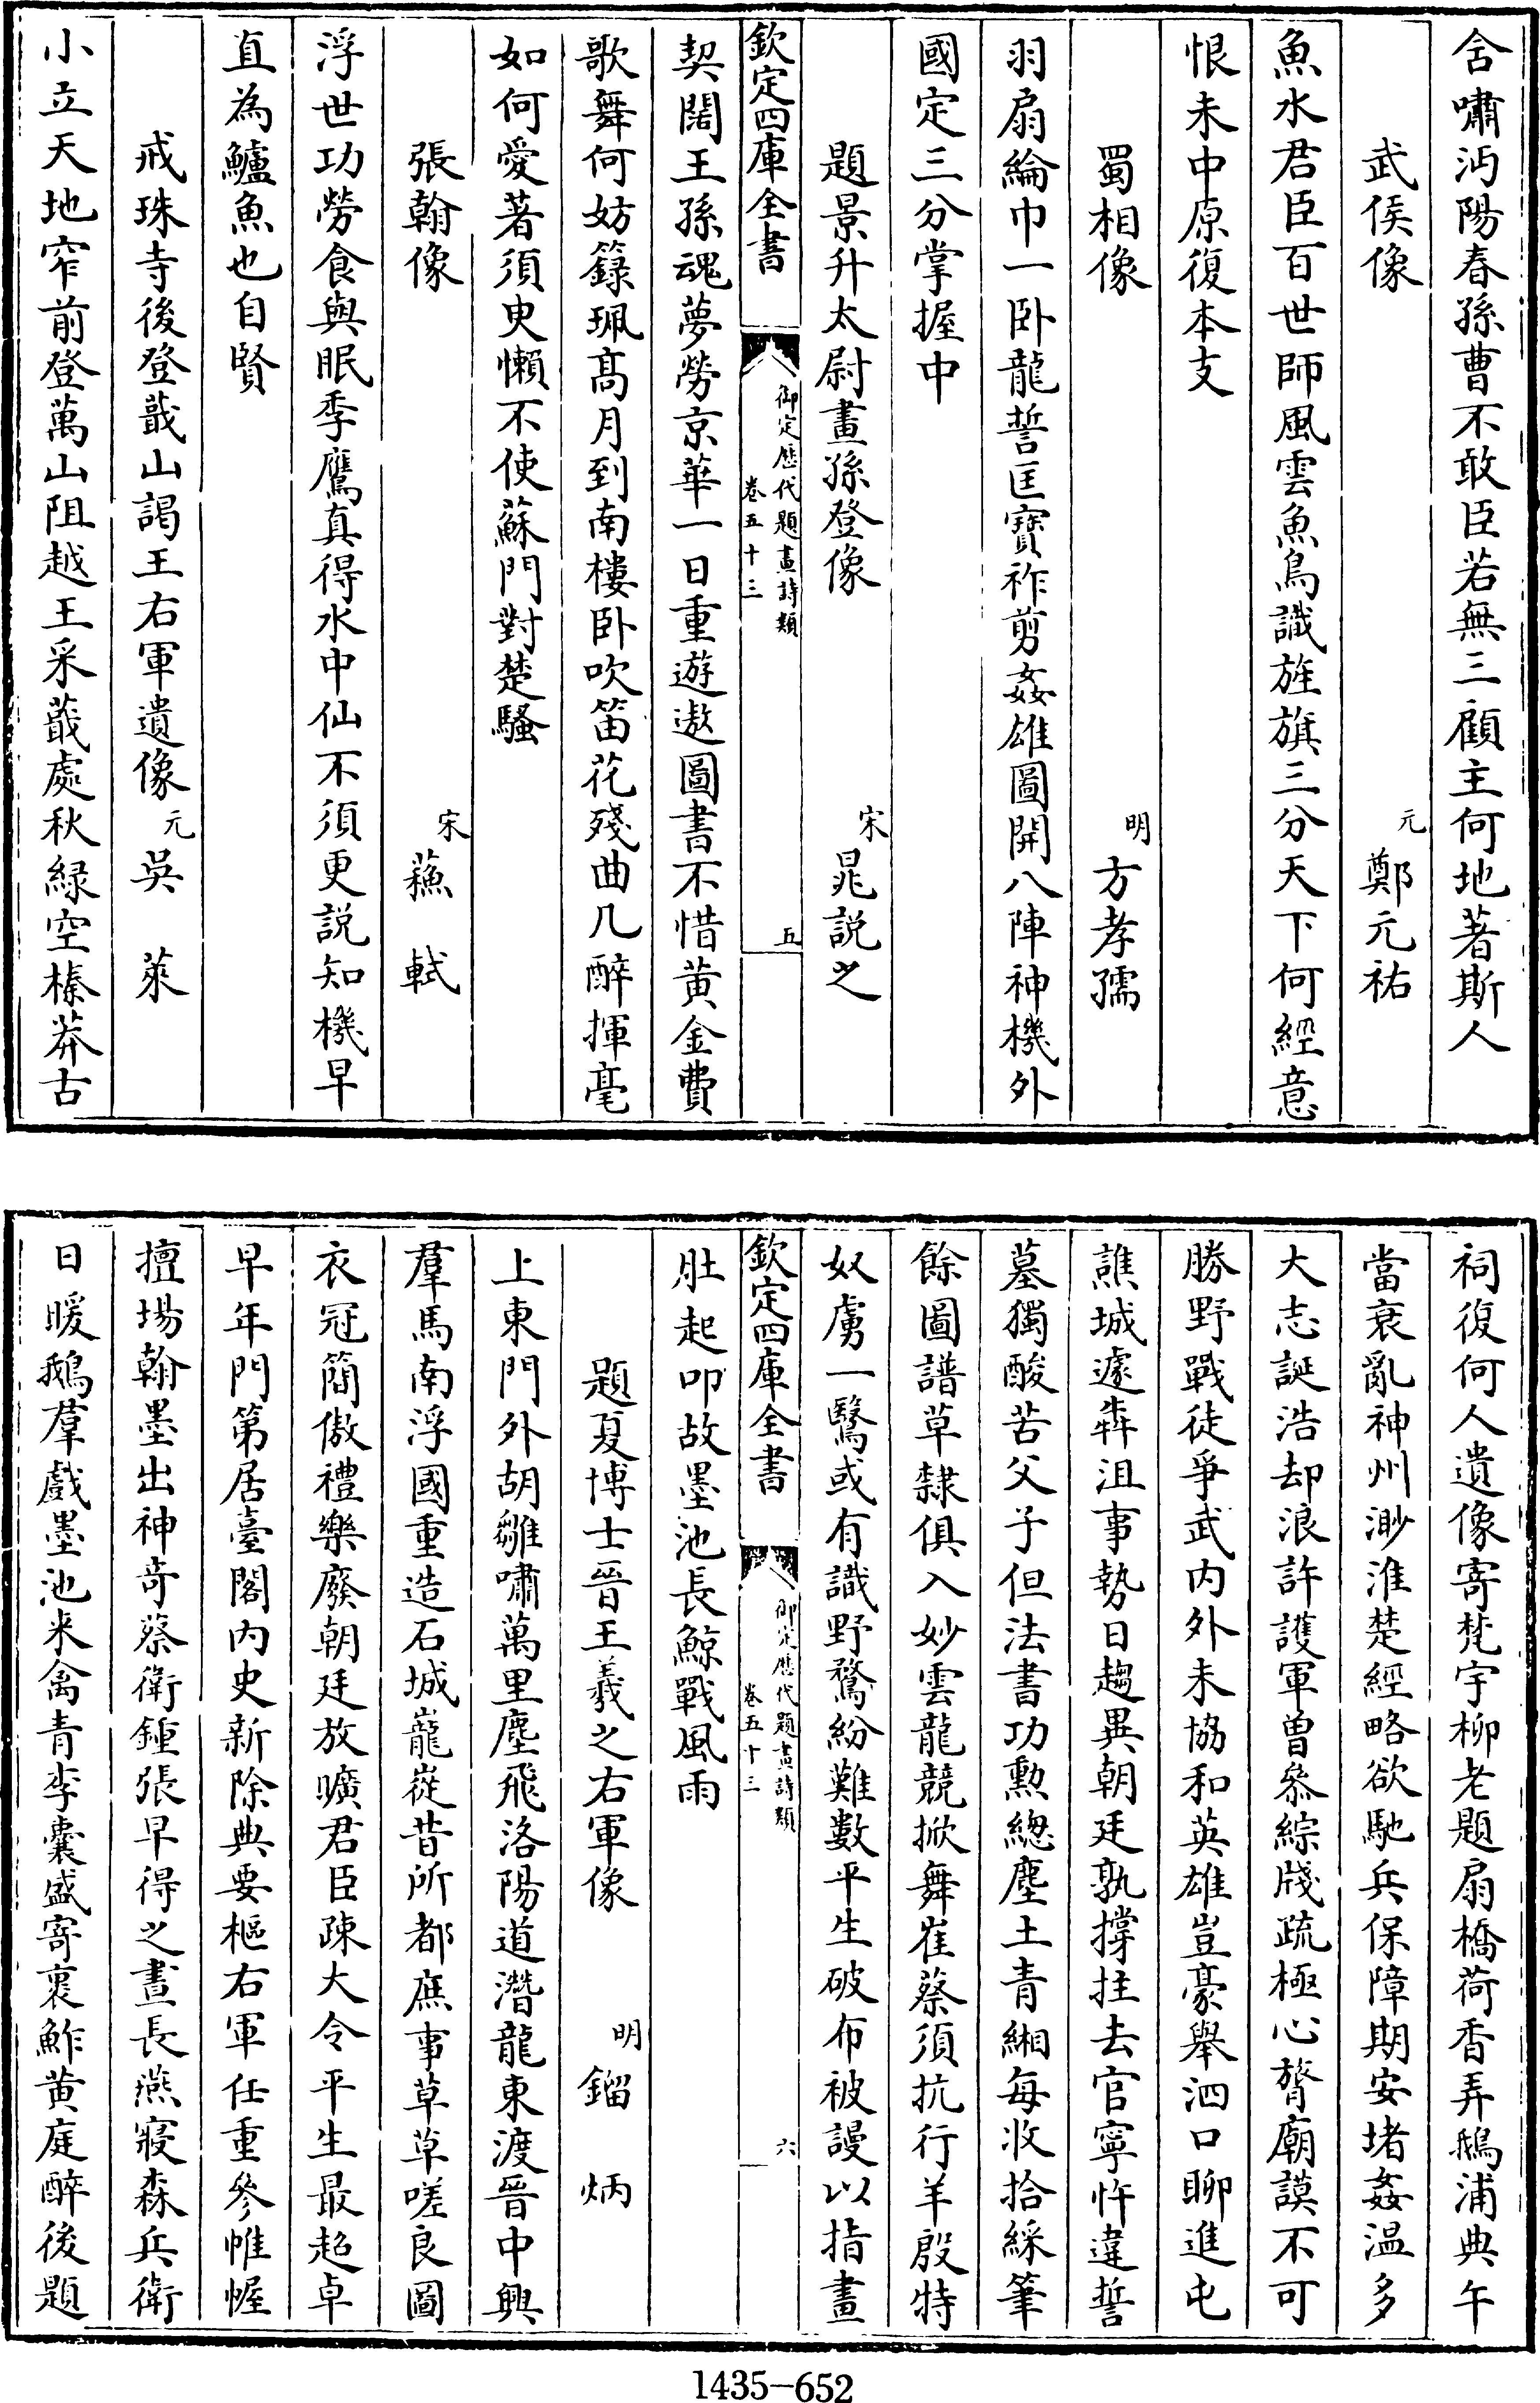 舍嘯沔陽春孫曹不敢臣若無三顧主何地著斯人
武侯像 元 鄭元祐
魚水君臣百世師風雲魚鳥識旌旗三分天下何經意
恨未中原復本支
蜀相像 明 方孝孺
羽扇綸巾一卧龍誓匡寶祚剪姦雄圖開八陣神機外
國定三分掌握中
題景升太尉畫孫登像 宋 晁説之
欽定四庫全書 御定歴代題畫詩類 卷五十三 五
契闊王孫魂夢勞京華一日重遊遨圖書不惜黄金費
歌舞何妨籙珮髙月到南樓卧吹笛花殘曲几醉揮毫
如何愛著須臾懶不使蘇門對楚騷
張翰像 宋 蘇軾
浮世功勞食與眠季鷹真得水中仙不須更説知機早
直為鱸魚也自賢
戒珠寺後登蕺山謁王右軍遺像 元 吳萊
小立天地窄前登萬山阻越王采蕺處秋緑空榛莽古
祠復何人遺像寄梵宇柳老題扇橋荷香弄鵝浦典午
當衰亂神州渺淮楚經略欲馳兵保障期安堵姦温多
大志誕浩却浪許護軍曽叅綜牋疏極心膂廟謨不可
勝野戰徒爭武内外未協和英雄豈豪舉泗口聊進屯
譙城遽犇沮事勢日趨異朝廷孰撐拄去官寧忤違誓
墓獨酸苦父子但法書功勲總塵土青緗每收拾綵筆
餘圖譜草隸俱入妙雲龍競掀舞崔蔡須抗行羊殷特
奴虜一鶩或有識野騖紛難數平生破布被謾以指畫
欽定四庫全書 御定歴代題畫詩類 卷五十三 六
肚起叩故墨池長鯨戰風雨
題夏博士晉王羲之右軍像 明 鎦炳
上東門外胡雛嘯萬里塵飛洛陽道潛龍東渡晉中興
羣馬南浮國重造石城巃嵸昔所都廡事草草嗟良圖
衣冠簡傲禮樂廢朝廷放曠君臣疎大令平生最超卓
早年門第居臺閣内史新除典要樞右軍任重參帷幄
擅場翰墨出神竒蔡衛鍾張早得之晝長燕寢森兵衛
日暖鵝羣戲墨池来禽青李囊盛寄裹鮓黄庭醉後題
1435-652